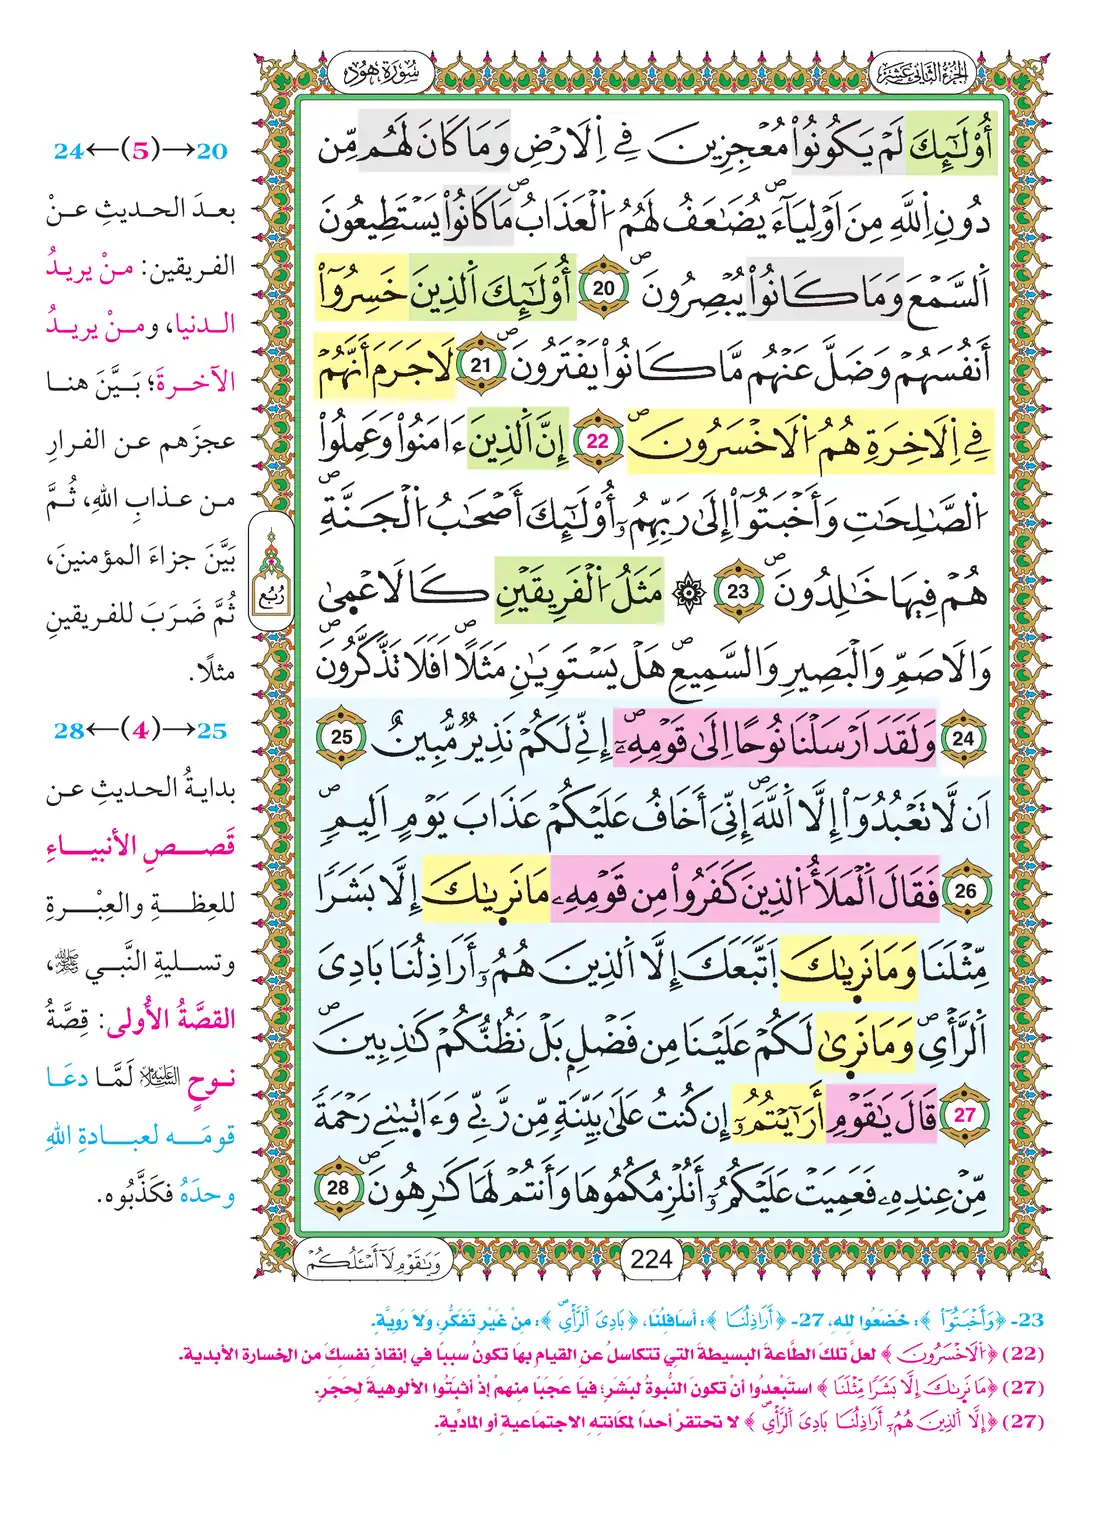 الجزء الثاني عشر
سورة هود
أُوْلَٰٓئِكَ لَمْ يَكُونُواْ مُعْجِزِينَ فِے اِ۬لَارْضِ وَمَا كَانَ لَهُم مِّن
دُونِ اِ۬للَّهِ مِنَ اَوْلِيَآءَۖ يُضَٰعَفُ لَهُمُ اُ۬لْعَذَابُۖ مَا كَانُواْ يَسْتَطِيعُونَ
اَ۬لسَّمْعَ وَمَا كَانُواْ يُبْصِرُونَۖ 20 أُوْلَٰٓئِكَ اَ۬لذِينَ خَسِرُوٓاْ
أَنفُسَهُمْ وَضَلَّ عَنْهُم مَّا كَانُواْ يَفْتَرُونَۖ 21 لَا جَرَمَ أَنَّهُمْ
فِے اِ۬لَاخِرَةِ هُمُ اُ۬لَاخْسَرُونَۖ 22 إِنَّ اَ۬لذِينَ ءَامَنُواْ وَعَمِلُواْ
اُ۬لصَّٰلِحَٰتِ وَأَخْبَتُوٓاْ إِلَىٰ رَبِّهِمُۥٓ أُوْلَٰٓئِكَ أَصْحَٰبُ اُ۬لْجَنَّةِۖ
هُمْ فِيهَا خَٰلِدُونَۖ 23 ۞ مَثَلُ اُ۬لْفَرِيقَيْنِ كَالَاعْمَىٰ
وَالَاصَمِّ وَالْبَصِيرِ وَالسَّمِيعِۖ هَلْ يَسْتَوِيَٰنِ مَثَلًاۖ اَفَلَا تَذَّكَّرُونَۖ
24 وَلَقَدَ اَرْسَلْنَا نُوحًا اِلَىٰ قَوْمِهِۦٓۖ إِنِّے لَكُمْ نَذِيرٌ مُّبِينٌ 25
اَن لَّا تَعْبُدُوٓاْ إِلَّا اَ۬للَّهَۖ إِنِّيَ أَخَافُ عَلَيْكُمْ عَذَابَ يَوْمٍ اَلِيمٍۖ
26 فَقَالَ اَ۬لْمَلَأُ اُ۬لذِينَ كَفَرُواْ مِن قَوْمِهِۦ مَا نَر۪ىٰكَ إِلَّا بَشَرًا
مِّثْلَنَا وَمَا نَر۪ىٰكَ اَ۪تَّبَعَكَ إِلَّا اَ۬لذِينَ هُمُۥٓ أَرَاذِلُنَا بَادِيَ
اَ۬لرَّأْيِۖ وَمَا نَر۪ىٰ لَكُمْ عَلَيْنَا مِن فَضْلٍۢ بَلْ نَظُنُّكُمْ كَٰذِبِينَۖ
27 قَالَ يَٰقَوْمِ أَرَٰٓيْتُمُۥٓ إِن كُنتُ عَلَىٰ بَيِّنَةٍ مِّن رَّبِّے وَءَات۪ىٰنِے رَحْمَةً
مِّنْ عِندِهِۦ فَعَمِيَتْ عَلَيْكُمُۥٓ أَنُلْزِمُكُمُوهَا وَأَنتُمْ لَهَا كَٰرِهُونَۖ 28
رُبُع
وَيَٰقَوْمِ لَآ أَسْـَٔلُكُمْ
224
20→(5)←24
بعدَ الحديثِ عنْ
الفريقين: منْ يريدُ
الدنيا، ومنْ يريدُ
الآخرةَ؛ بَيَّنَ هنا
عجزَهم عن الفرارِ
من عذابِ اللهِ، ثُمَّ
بَيَّنَ جزاءَ المؤمنينَ،
ثُمَّ ضَرَبَ للفريقينِ
مثلًا.
25→(4)←28
بدايةُ الحديثِ عن
قَصصِ الأنبياءِ
للعِظةِ والعِبْرةِ
وتسليةِ النَّبي ﷺ،
القصَّةُ الأُولى: قِصَّةُ
نوحٍ عليه السلام لَمَّا دعَا
قومَه لعبادةِ اللهِ
وحدَهُ فكَذَّبُوه.
23- ﴿وَأَخْبَتُوٓاْ﴾: خَضَعُوا للهِ، 27- ﴿أَرَاذِلُنَا﴾: أسَافلُنَا، ﴿بَادِيَ اَ۬لرَّأْيِۖ﴾: مِنْ غَيْرِ تَفَكُّرٍ، ولَا رَوِيَّةٍ.
(22) ﴿اُ۬لَاخْسَرُونَ﴾ لعلَّ تلكَ الطَّاعةَ البسيطةَ التي تتكاسلُ عنِ القيامِ بها تكونُ سببًا في إنقاذِ نفسِكَ من الخسارة الأبدية.
(27) ﴿مَا نَر۪ىٰكَ إِلَّا بَشَرًا مِّثْلَنَا﴾ استبعدُوا أنْ تكونَ النُّبوةُ لبشرٍ؛ فيا عجبًا منهمْ إذْ أثبتُوا الألوهيةَ لحَجَرٍ.
(27) ﴿إِلَّا اَ۬لذِينَ هُمُۥٓ أَرَاذِلُنَا بَادِيَ اَ۬لرَّأْيِۖ﴾ لا تحتقرْ أحدًا لمكانتهِ الاجتماعيةِ أو المادِّيةِ.